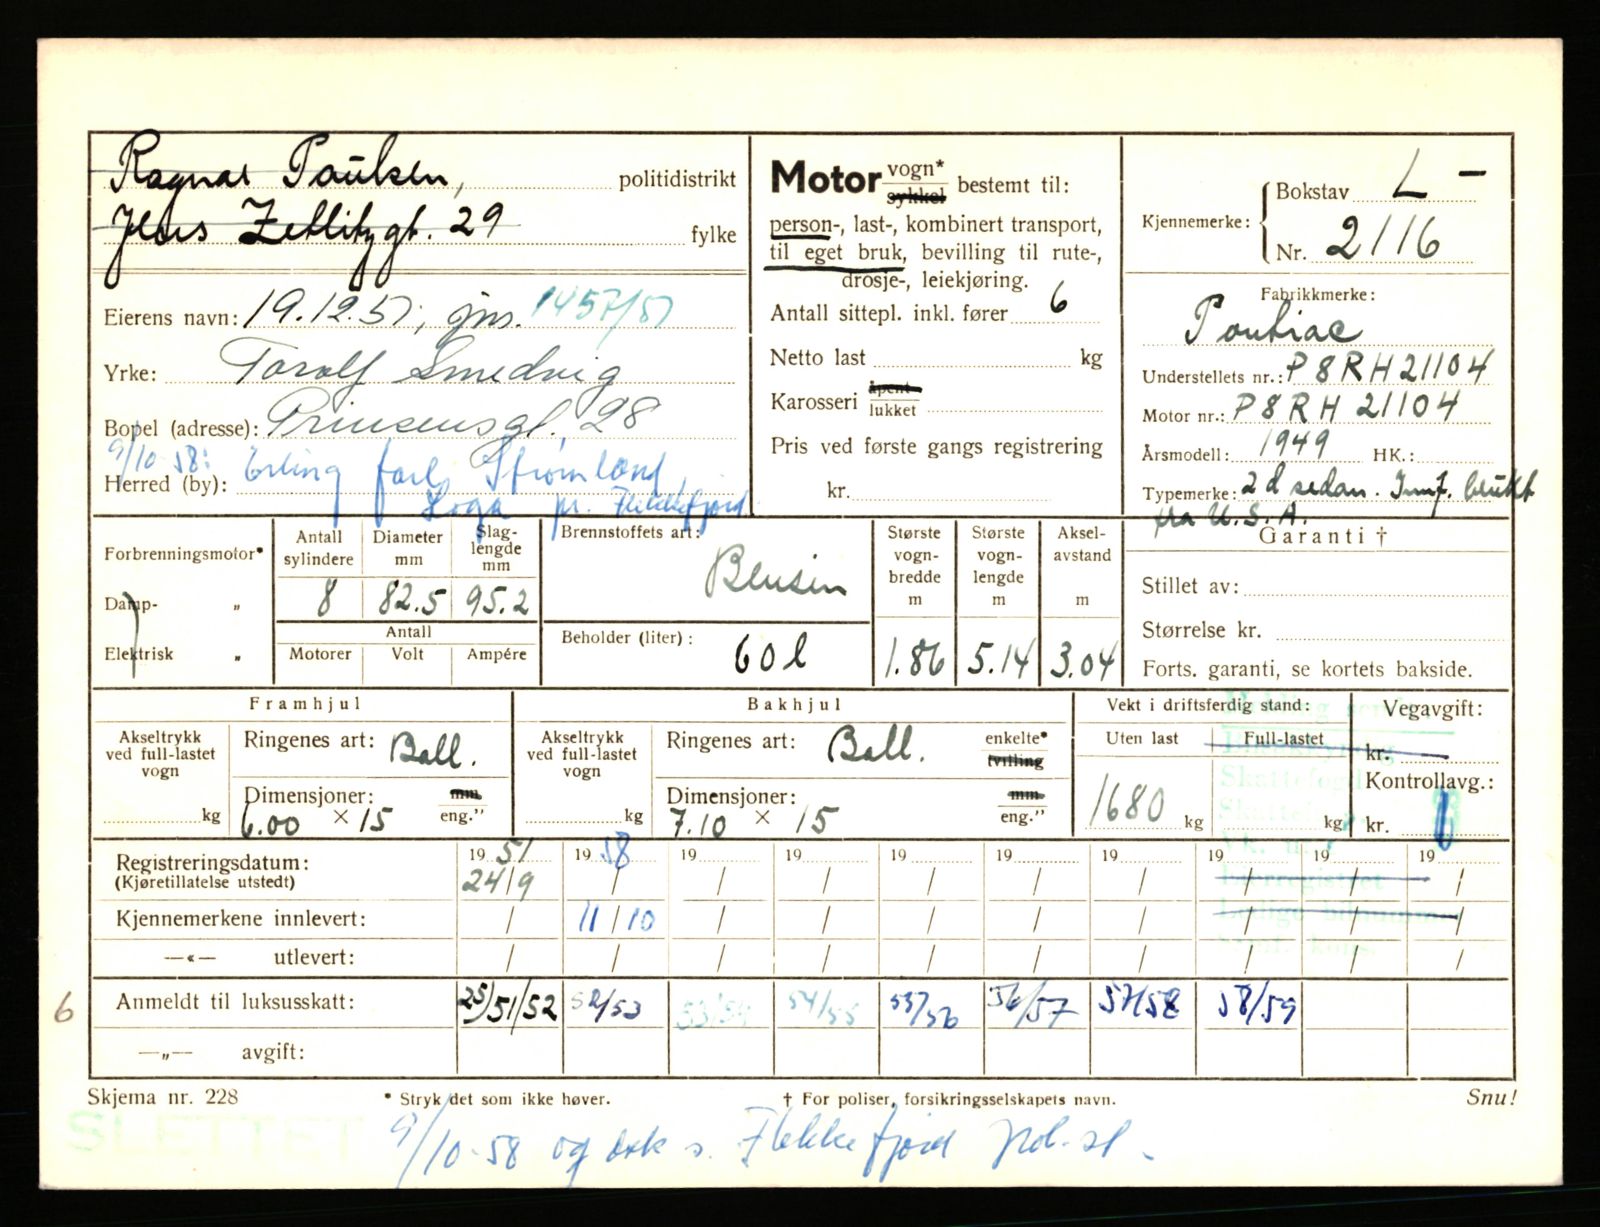 Ragnar Paulsen, politidistrikt
Jens Zetlitzgt. 29 fylke
Eierens navn: 19.12.51, jnr. 1457/51
Yrke: Torolf Smedvig
Bopel (adresse): Prinsensgt. 28
9/10-58: Erling Strømland,
Herred (by): Loga pr. Flekkefjord
Motor vogn* sykkel bestemt til:
person-, last-, kombinert transport,
til eget bruk, bevilling til rute-,
drosje-, leiekjøring.
Antall sittepl. inkl. fører 6
Netto last kg
Karosseri åpent lukket
Pris ved første gangs registrering
kr.
Kjennemerke: Bokstav L-
Nr. 2116
Fabrikkmerke:
Pontiac
Understellets nr.: P8RH21104
Motor nr.: P8RH21104
Årsmodell: 1949 HK.:
Typemerke: 2 d sedan. Innf. brukt
fra U.S.A.
Garanti †
Stillet av:
Størrelse kr.
Forts. garanti, se kortets bakside.
Forbrenningsmotor*
Damp- „
Elektrisk „
Antall sylindere Diameter mm Slag-lengde mm
8 82.5 95.2
Antall
Motorer Volt Ampére
Brennstoffets art:
Bensin
Beholder (liter):
60 l
Største vogn-bredde m Største vogn-lengde m Aksel-avstand m
1.86 5.14 3.04
Framhjul
Akseltrykk ved full-lastet vogn
kg
Ringenes art: Ball.
Dimensjoner: mm
6.00 × 15 eng.”
Bakhjul
Akseltrykk ved full-lastet vogn
kg
Ringenes art: Ball. enkelte* tvilling
Dimensjoner: mm
7.10 × 15 eng.”
Vekt i driftsferdig stand:
Uten last Full-lastet
1680 kg kg
Vegavgift:
kr.
Kontrollavg.:
kr.
Registreringsdatum: 19 51 19 58 19 19 19 19 19 19 19 19
(Kjøretillatelse utstedt) 24/9 / / / / / / / / /
Kjennemerkene innlevert: / 11/10 / / / / / / / /
—«— utlevert: / / / / / / / / / /
6 Anmeldt til luksusskatt: 25/51/52 52/53 53/54 54/55 55/56 56/57 57/58 58/59
—„— avgift:
Skjema nr. 228 * Stryk det som ikke høver. † For poliser, forsikringsselskapets navn. Snu!
SLETTET
9/10-58 og Flekkefjord